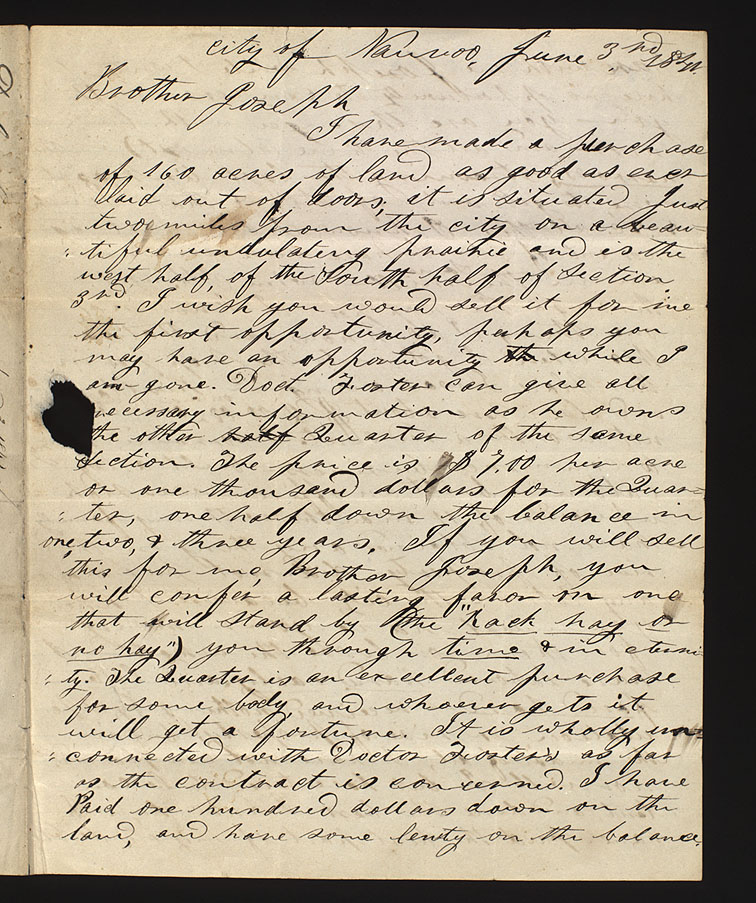 city of Nauvoo, June 3rd, 1841.
Brother Joseph
I have made a purchase
of 160 acres of land as good as ever
laid out of doors, it is situated Just
two miles from the city on a beau-
:tiful undulateing prairie and is the
west half, of the South half of section
3rd. I wish you would sell it for me
the first opportunity, perhaps you
may have an opportunity th while I
am gone. Doct. Foster can give all
necessary information as he owns
the other half Quarter of the same
section. The price is $7.00 per acre
or one thousand dollars for the Quar-
:ter, one half down the balance in
one, two, & three years. If you will sell
this for me, Brother Joseph, you
will confer a lasting favor on one
that will stand by (the "hack nay or
no hay,") you through time & in eterni-
:ty. The Quarter is an excellent purchase
for some body and whoever gets it
will get a fortune. It is wholly un-
:connected with Doctor Foster's as far
as the contract is concerned. I have
Paid one hundred dollars down on the
land, and have some lenty on the balance.